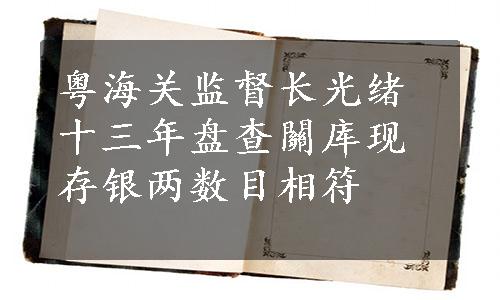 粤海关监督长光绪
十三年盘查關库现
存银两数目相符